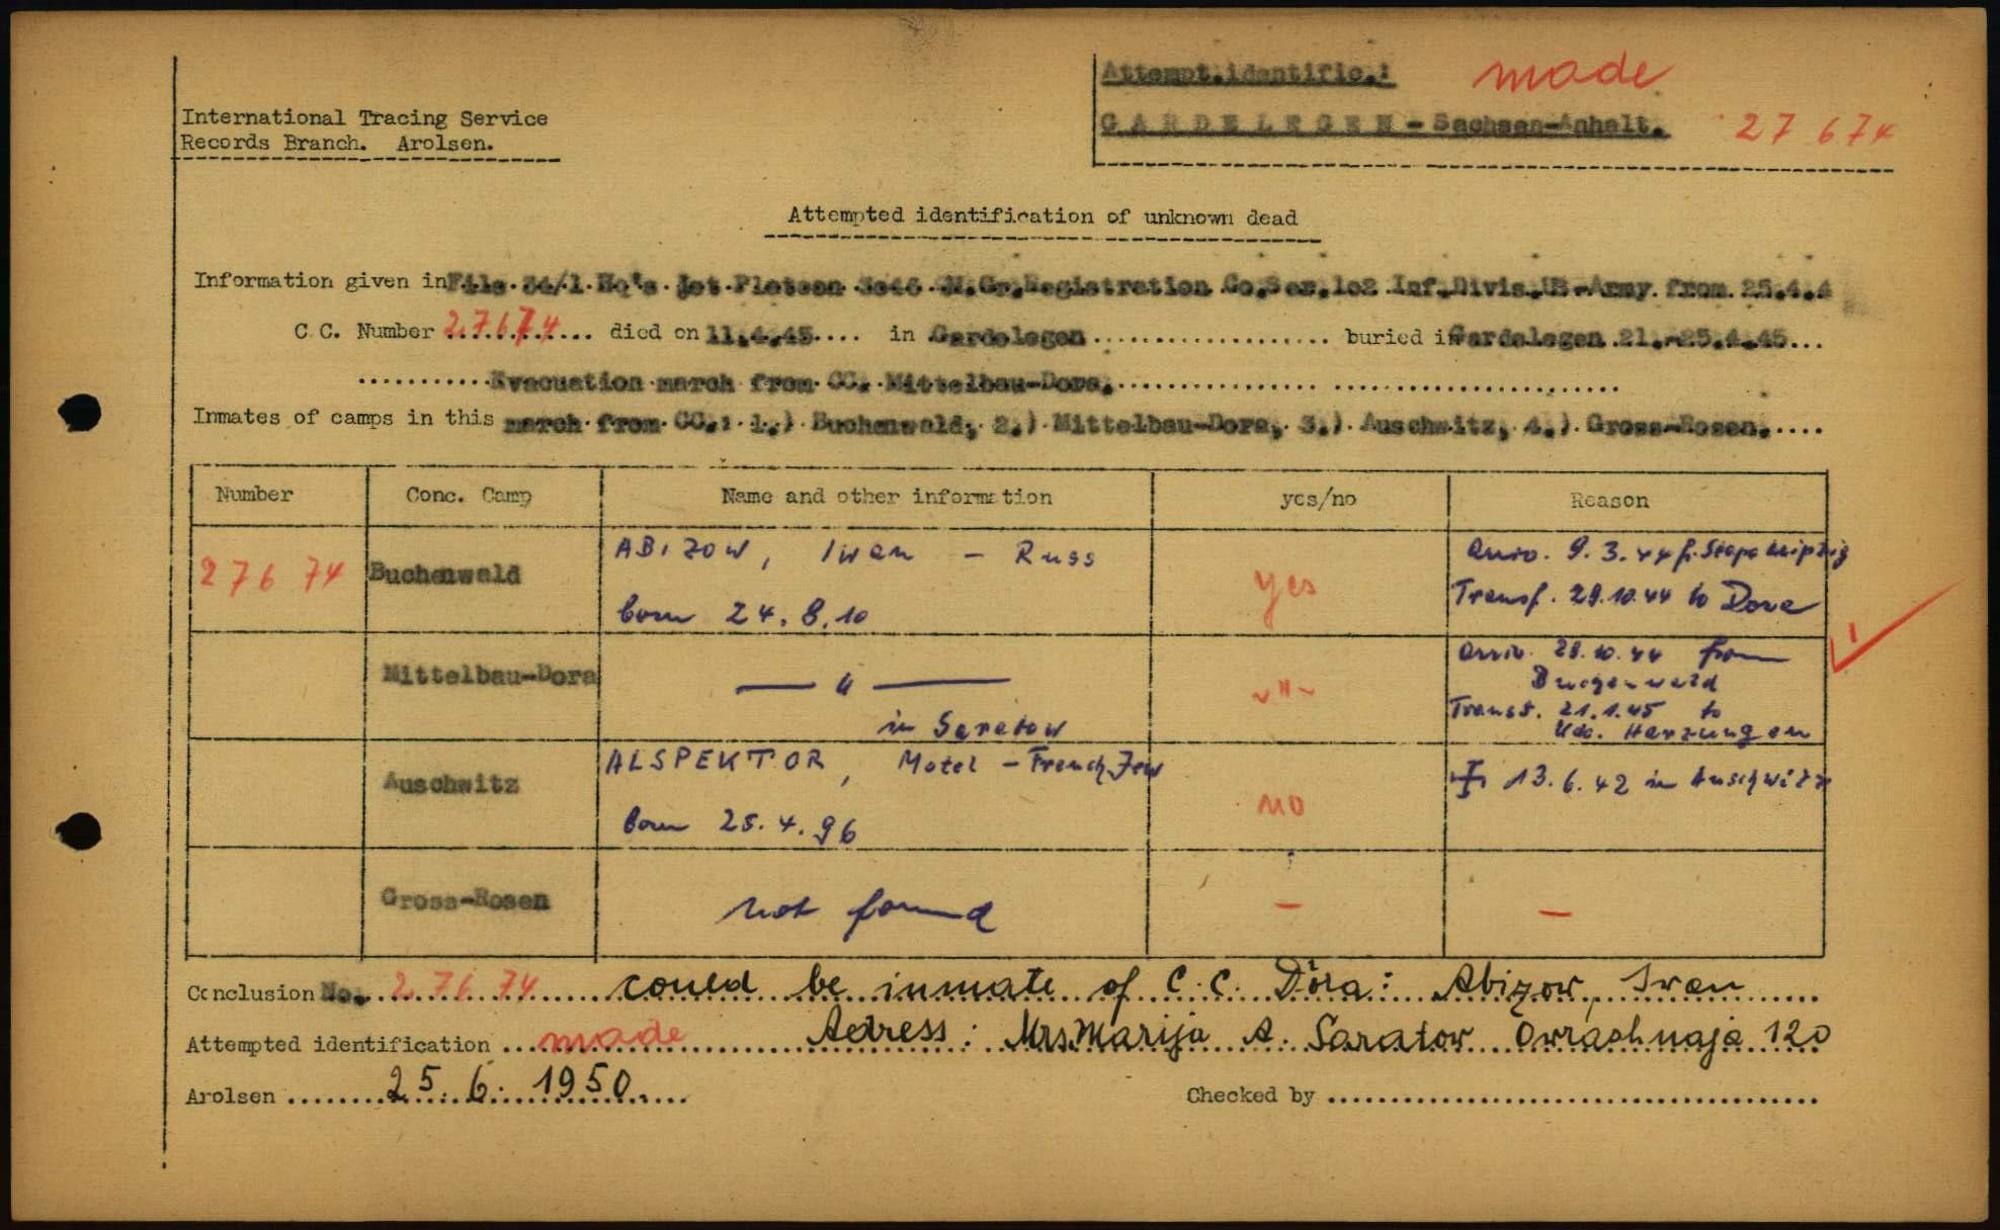 Attempt.identific.: made
International Tracing Service
Records Branch. Arolsen.
GARDELEGEN - Sachsen-Anhalt. 27 674
Attempted identification of unknown dead
Information given in File 34/1 Hq's Det Pletoon 3046 Gr.Registration Co.Ser.102 Inf.Divis.US-Army from 25.4.4
C.C. Number 27674 died on 11.4.45 in Gardelegen buried in Gardelegen 21.-25.4.45
Evacuation march from CC. Mittelbau-Dora.
Inmates of camps in this march from CC.: 1.) Buchenwald, 2.) Mittelbau-Dora, 3.) Auschwitz, 4.) Gross-Rosen.
Number Conc. Camp Name and other information yes/no Reason
276 74 Buchenwald ABIZOW, Iwan - Russ yes arriv. 9.3.44 f. Stapo Leipzig
born 24.8.10 Transf. 29.10.44 to Dora
Mittelbau-Dora — " — -"- arriv. 28.10.44 from
Buchenwald
in Saratow Transf. 21.1.45 to
Kdo. Harzungen
Auschwitz ALSPEKTOR, Motel - French Jew no 13.6.42 in Auschwitz
born 25.4.96
Gross-Rosen not found — —
Conclusion No. 276 74 could be inmate of C.C. Dora: Abizow, Iwan
Attempted identification made Adress: Mrs. Marija A. Saratow 120
Arolsen 25.6.1950. Checked by